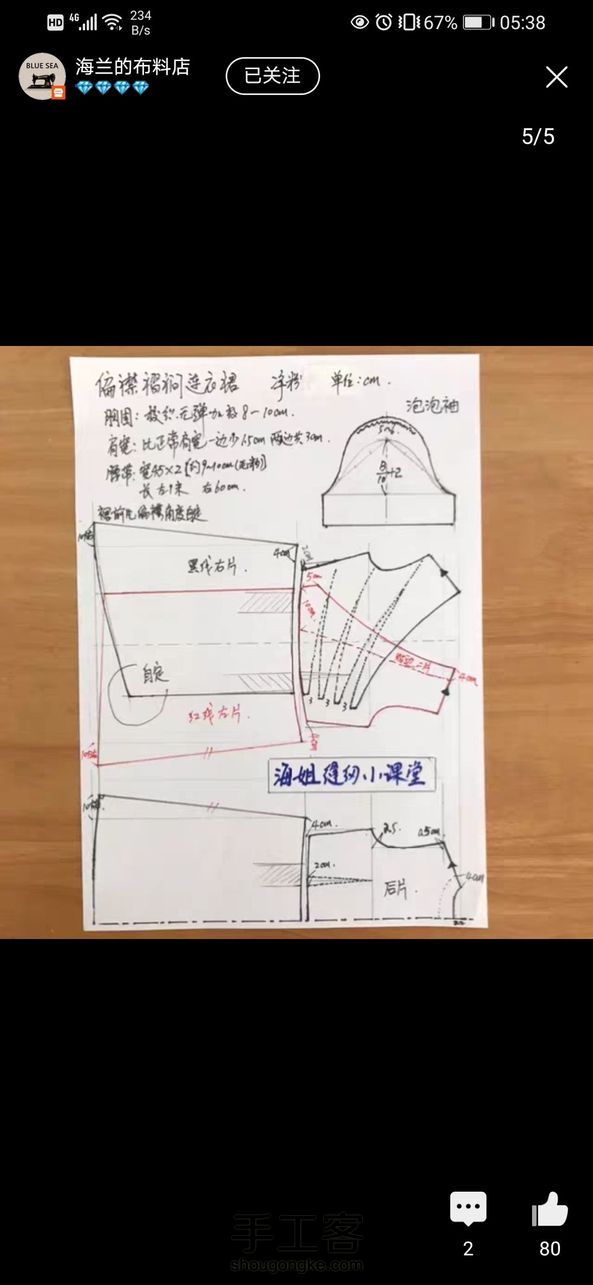 HD 4G 234 B/s 67% 05:38
BLUE SEA
海兰的布料店
已关注
5/5
偏襟褶裥连衣裙 净粉 单位:cm.
胸围:梭织无弹加放8-10cm.
肩宽:比正常肩宽一边少1.5cm 两边共3cm.
长左1米 右60cm.
裙前片偏襟角度自定
泡泡袖
黑线右片.
4cm
5cm
10cm
自定
红线左片.
3 3 3
4cm
4cm
海姐缝纫小课堂
4cm.
2.5.
0.5cm.
2cm.
后片.
4cm
手工客
shougongke.com
2
80